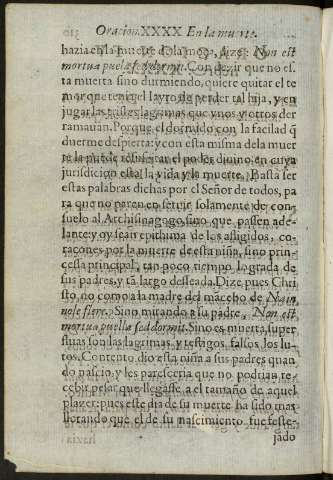 Oracion.XXXX En la muerte
hazia en la muerte de la moça, dize: Non est
mortua puella sed dormit. Con dezir que no es-
ta muerta sino durmiendo, quiere quitar el te
mor que tenia el layro de perder tal hija, y en
jugar las tristes lagrimas que vnos y otros der
ramauan. Porque el dormido con la facilad q̃
duerme despierta: y con esta misma de la muer
te la puede resuscitar el poder diuino en cuya
juridicion està la vida y la muerte. Hasta ser
estas palabras dichas por el Señor de todos, pa
ra que no paren en seruir solamente de con-
suelo al Archisinagogo, sino que passen ade-
lante: y oy sean epithima de los afligidos, co-
raçones por la muerte de esta niña, sino prin-
cessa principal, tan poco tiempo lograda de
sus padres, y tã largo desseada. Dize pues Chri
sto, no como a la madre del mãcebo de Naim
noli flere. Sino mirando a su padre, Non est
mortua puella sed dormit. Sino es muerta, super
fluas son las lagrimas, y testigos falsos los lu-
tos. Contento dio esta niña a sus padres quan
do nascio, y les parescería que no podrian re-
cebir pesar que llegasse a el tamaño de aquel
plazer: pues este dia de su muerte ha sido mas
llorando que el de su nascimiento fue feste-
jado